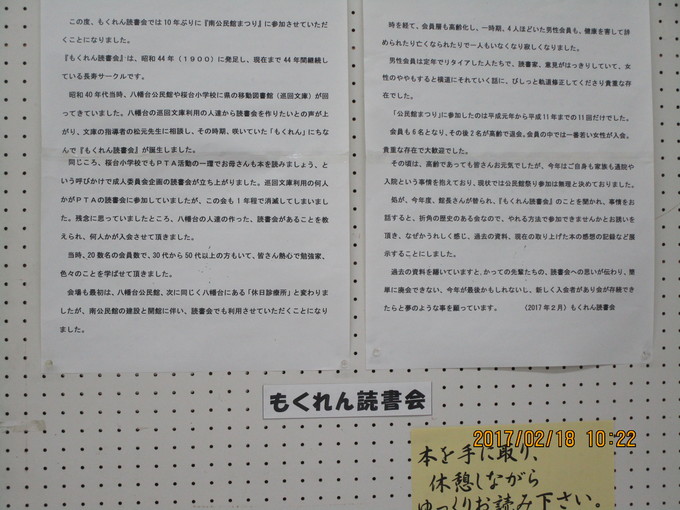 この度、もくれん読書会では10年ぶりに『南公民館まつり』に参加させていただ
くことになりました。
『もくれん読書会』は、昭和44年（1900）に発足し、現在まで44年間継続し
ている長寿サークルです。
昭和40年代当時、八幡台公民館や桜台小学校に県の移動図書館（巡回文庫）が回
ってきていました。八幡台の巡回文庫利用の人達から読書会を作りたいとの声が上
がり、文庫の指導者の松元先生に相談し、その時期、咲いていた「もくれん」にちなん
で『もくれん読書会』が誕生しました。
同じころ、桜台小学校でもPTA活動の一環でお母さんも本を読みましょう、と
いう呼びかけで成人委員会企画の読書会が立ち上がりました。巡回文庫利用の何人
かがPTAの読書会に参加していましたが、この会も1年程で消滅してしまいまし
た。残念に思っていましたところ、八幡台の人達の作った、読書会があることを教
えられ、何人かが入会させて頂きました。
当時、20数名の会員数で、30代から50代以上の方もいて、皆さん熱心で勉強家、
色々のことを学ばせて頂きました。
会場も最初は、八幡台公民館、次に同じく八幡台にある「休日診療所」と変わりま
したが、南公民館の建設と開館に伴い、読書会でも利用させていただくことになり
ました。
時を経て、会員層も高齢化し、一時期、4人ほどいた男性会員も、健康を害して辞
められたり亡くなられたりで一人もいなくなり寂しくなりました。
男性会員は定年でリタイアした人たちで、読書家、意見がはっきりしていて、女
性のややもすると横道にそれていく話に、びしっと軌道修正してくださり貴重な存
在でした。
「公民館まつり」に参加したのは平成元年から平成11年までの11回だけでした。
会員も6名となり、その後2名が高齢で退会。会員の中では一番若い女性が入会、
貴重な存在で大歓迎でした。
その頃は、高齢であっても皆さんお元気でしたが、今年はご自身も家族も通院や
入院という事情を抱えており、現状では公民館祭り参加は無理と決めておりました。
処が、今年度、館長さんが替られ、『もくれん読書会』のことを聞かれ、事情をお
話すると、折角の歴史のある会なので、やれる方法で参加できませんかとお誘いを
頂き、なぜかうれしく感じ、過去の資料、現在の取り上げた本の感想の記録など展
示することにしました。
過去の資料を繙いていますと、かつての先輩たちの、読書会への思いが伝わり、簡
単に廃会できない、今年が最後かもしれないし、新しく入会者があり会が存続でき
たらと夢のような事を願っています。　（2017年2月）もくれん読書会
もくれん読書会
2017/02/18 10:22
本を手に取り、
休憩しながら
ゆっくりお読み下さい。